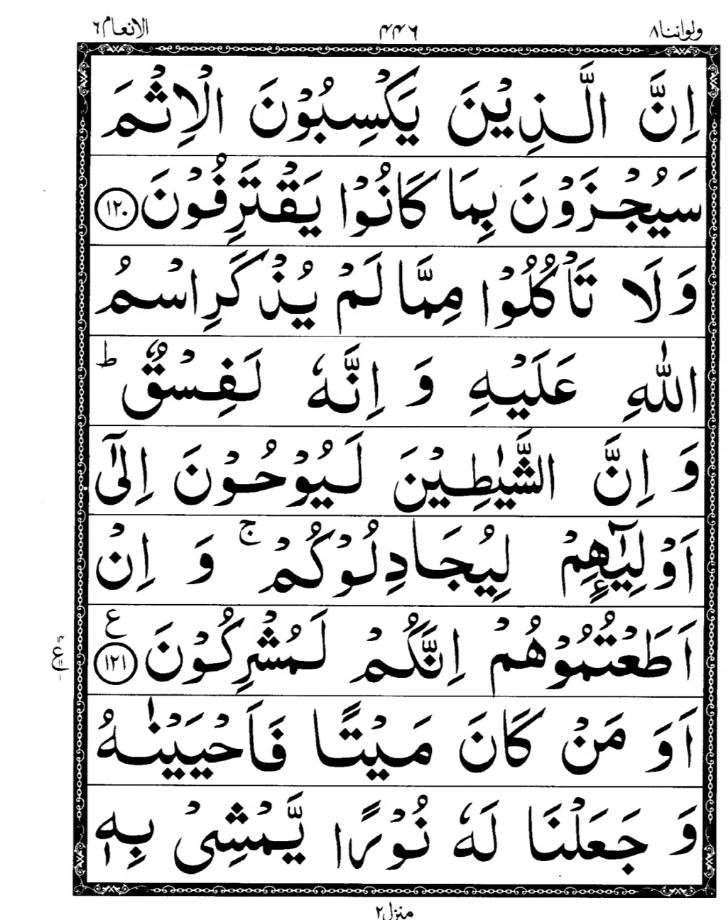 ولواننا ٨ ٤٤٦ الانعام ٦
اِنَّ الَّذِيْنَ يَكْسِبُوْنَ الْاِثْمَ
سَيُجْزَوْنَ بِمَا كَانُوْا يَقْتَرِفُوْنَ ﴿١٢٠﴾
وَلَا تَاْكُلُوْا مِمَّا لَمْ يُذْكَرِ اسْمُ
اللّٰهِ عَلَيْهِ وَ اِنَّهٗ لَفِسْقٌ ؕ
وَ اِنَّ الشَّيٰطِيْنَ لَيُوْحُوْنَ اِلٰٓى
اَوْلِيٰٓـِٕهِمْ لِيُجَادِلُوْكُمْ ۚ وَ اِنْ
اَطَعْتُمُوْهُمْ اِنَّكُمْ لَمُشْرِكُوْنَ ﴿١٢١﴾ ع
اَوَ مَنْ كَانَ مَيْتًا فَاَحْيَيْنٰهُ
وَ جَعَلْنَا لَهٗ نُوْرًا يَّمْشِىْ بِهٖ
منزل ٢